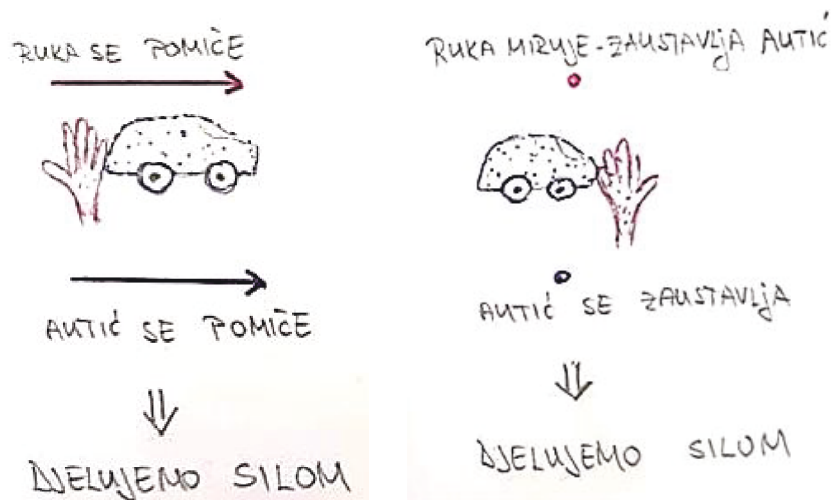 RUKA SE POMIČE
AUTIĆ SE POMIČE
DJELUJEMO SILOM
RUKA MIRUJE-ZAUSTAVLJA AUTIĆ
AUTIĆ SE ZAUSTAVLJA
DJELUJEMO SILOM